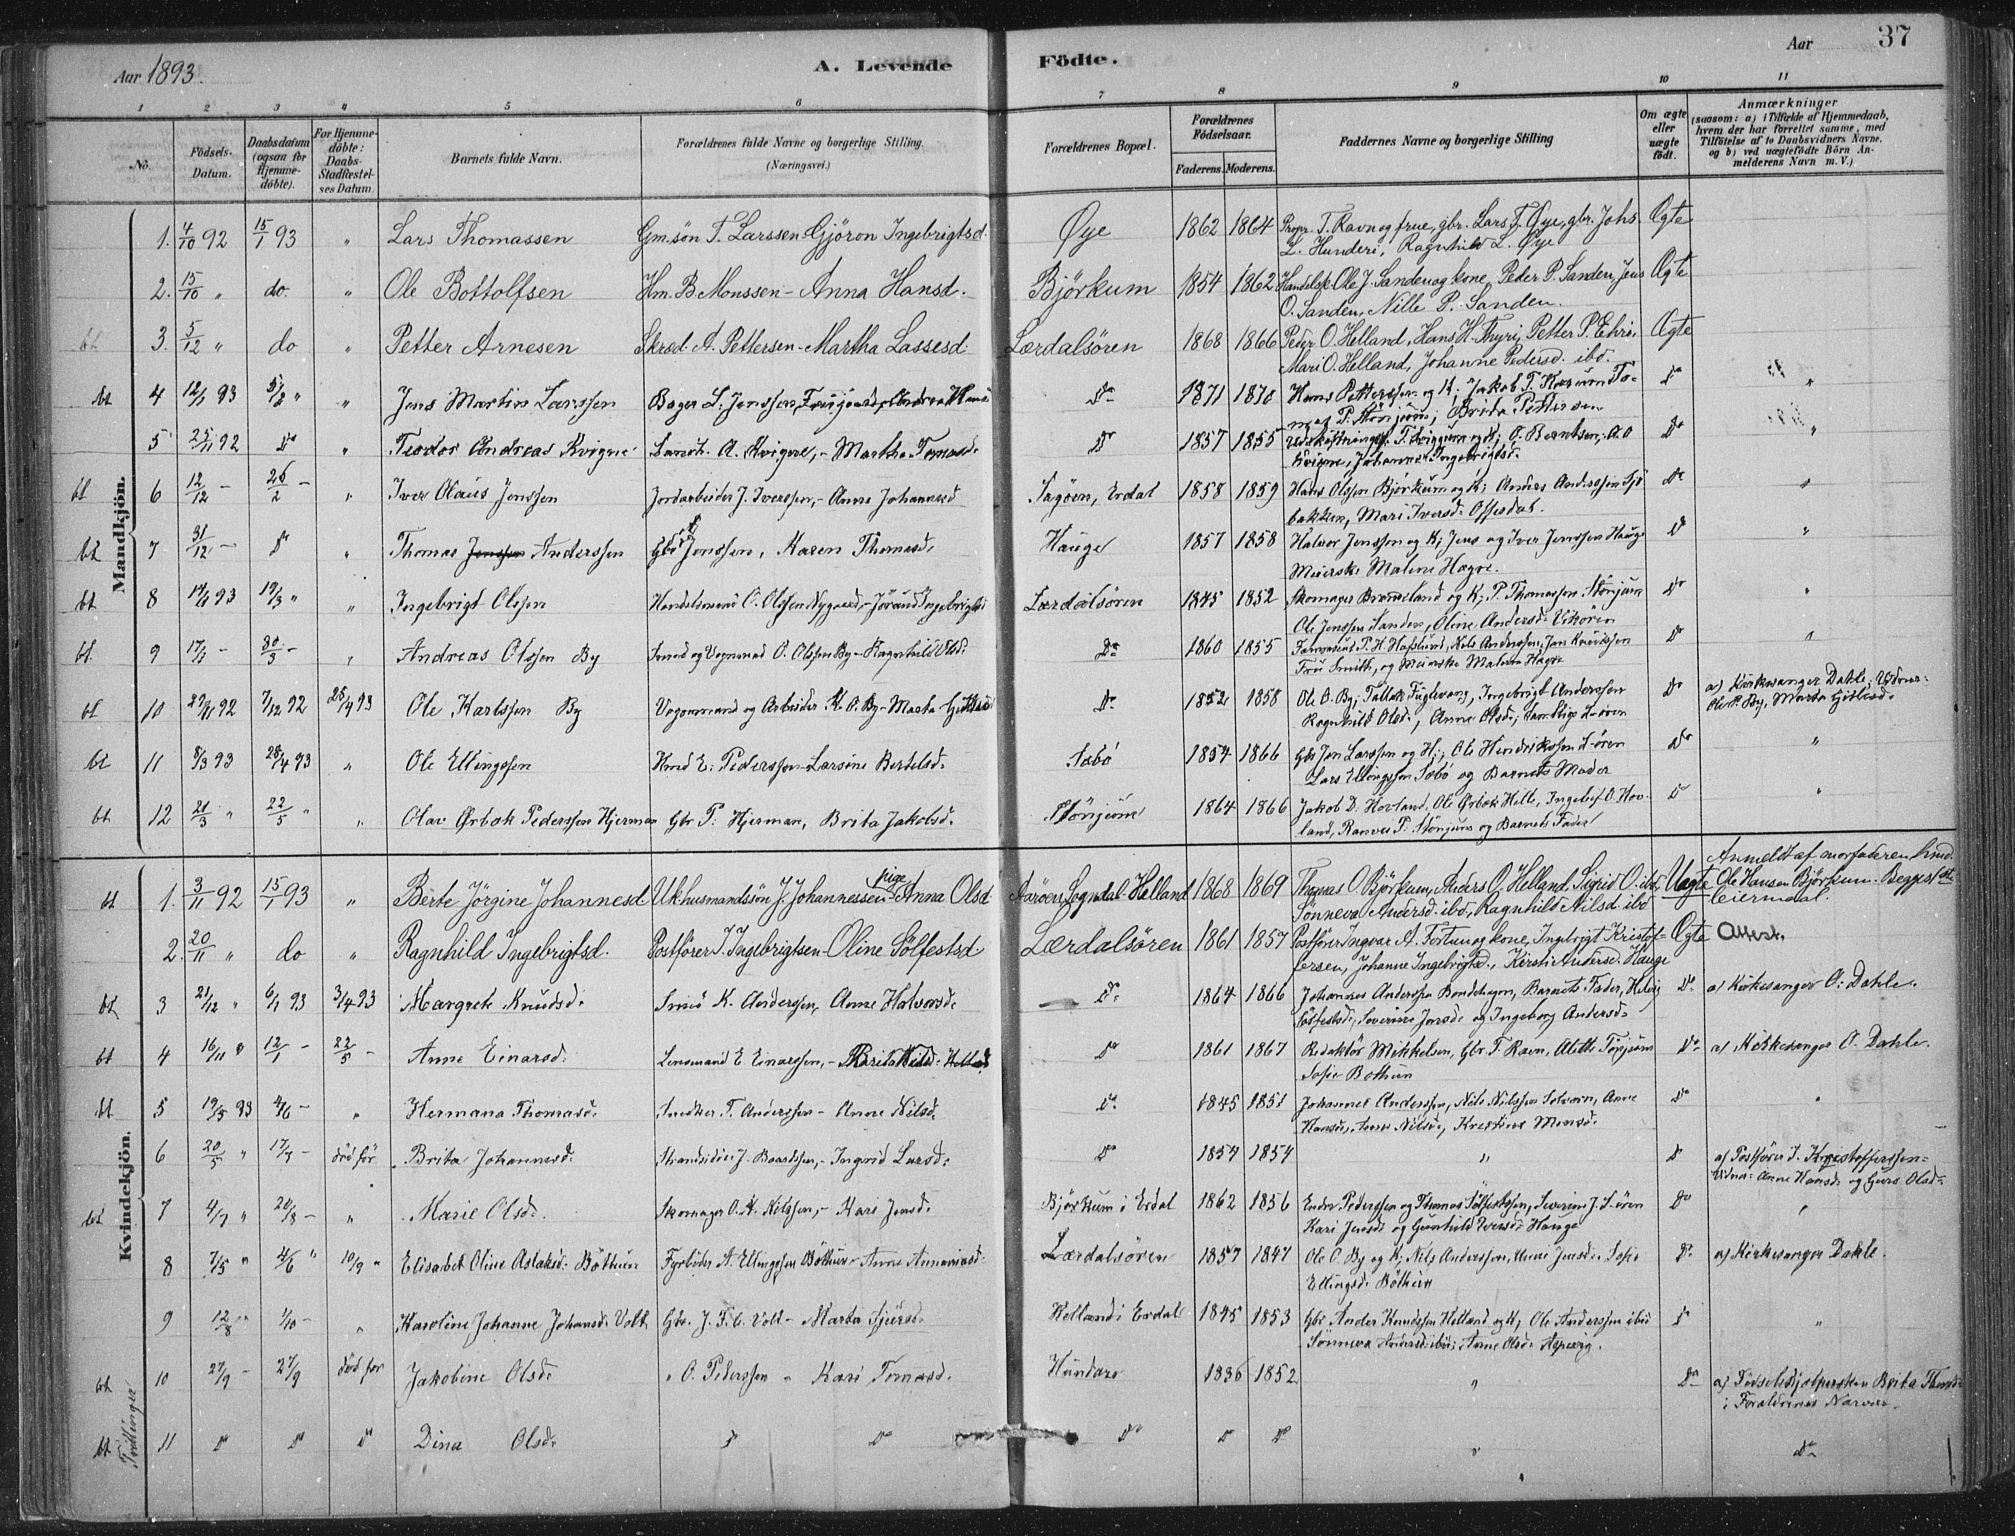 Aar 1893.
A. Levende Födte.
Aar
37
1 2 3 4 5 6 7 8 9 10 11
No.
Födsels-Datum.
Daabsdatum (ogsaa for Hjemme-döbte).
For Hjemme-döbte: Daabs-Stadfæstel-ses Datum.
Barnets fulde Navn.
Forældrenes fulde Navne og borgerlige Stilling. (Næringsvei.)
Forældrenes Bopæl.
Forældrenes Födselsaar.
Faderens. Moderens.
Faddernes Navne og borgerlige Stilling
Om ægte eller uægte födt.
Anmærkninger
(saasom: a) i Tilfælde af Hjemmedaab, hvem der har forrettet samme, med Tilföielse af to Daabsvidners Navne, og b) ved uægtefödte Börn Anmelderens Navn m. V.)
Mandkjön.
1. 4/10 92 15/1 93 " Lars Thomassen Gm.søn T. Larssen Gjöron Ingebrigtsd. Øye 1862 1864 Propr. T. Ravn og frue, gbr. Lars T. Øye, gbr. Johs. Ægte
L. Hunderi, Ragnhild L. Øye
2. 15/10 " do. " Ole Bottolfsen Hm. B. Monssen - Anna Hansd. Björkum 1854 1862 Handelsk. Ole J. Sanden og kone, Peder P. Sanden, Jens Ægte
O. Sanden, Nille P. Sanden.
bt 3. 5/12 " do " Petter Arnesen Skræd. A. Pettersen - Martha Lassesd. Lærdalsören 1868 1866 Peder O. Helland, Hans H. Thyri, Petter P. Ehri, Ægte
Mari O. Helland, Johanne Pedersd. ibd.
bt 4 12/1 93 5/2 " " Jens Martin Larssen Bager L. Jenssen, Do 1871 1870 Hans Petterssen og K; Jakob T. To- Do "
mas P. Stönjum; Brita Pettersen
5 25/11 92 Do " Teodor Andreas Kvigne A. Kvigne, - Martha Tomasd. Do 1857 1855 Do "
Kvigne, Johanne Ingebrigtsd.
bt 6 12/12 - 26/2 - " Iver Olaus Jenssen Jordarbeider J. Iverssen, - Anne Johannesd Sagöen, Erdal 1858 1859 Hans Olssen Björkum og K; Anders Anderssen Do "
bakken, Mari Iversd. Offerdal.
bt 7 31/12 - Do " Thomas Jenssen Anderssen Gbr. Jenssen, Karen Thomasd. Hauge 1857 1858 Halvor Jenssen og K; Jens og Iver Jenssen Hauge Do "
Meierske Malene Hagve.
bt 8 14/1 93 19/3 " " Ingebrigt Olssen Handelsmand O. Olssen Nygaard, - Jörand Ingebrigtsd Lærdalsören 1845 1852 Skomager Brameland og K; P. Thomassen Stönjum Do "
Ole Jenssen Sanden, Oline Andersd. Vikören
bt 9 17/2 - 30/3 - " Andreas Olssen By Smed og Vognmand O. Olssen By - Ragnhild Olsd. Do 1860 1855 P. H. Hafslund, Nils Anderssen, Jon Do "
Fru Smith, og Meierske Malene Hagve
bt 10 27/11 92 7/12 92 25/4 93 Ole Karlssen By Vognmand og Arbeider K. O. By - Marta Do 1852 1858 Ole O. By, Tollak Fuglevang, Ingebrigt Anderssen Do a) Kirkesanger Dahle; Vidner:
Ragnhild Olsd., Anne Olsd; samtlige L-ören Ole P. By, Marta Gjetlesd.
bt 11 8/3 93 23/4 93 " Ole Ellingssen Hmd E. Pederssen - Larsine Bertelsd. Sæbö 1854 1866 Gbr Jon Larssen og H; Ole Hendrikssen L-ören Do "
Lars Ellingssen Sæbö og Barnets Moder
bt 12 21/3 " 22/5 " " Olav Ørbæk Pederssen Hjerman Gbr P. Hjerman, Brita Jakobsd. Stönjum 1864 1866 Jakob D. Hovland, Ole Ørbæk Hille, Ingeleif O. Hov- Do "
land, Ranvei P. Stönjum og Barnets Fader
Kvindekjön.
bt 1. 3/11 92 15/1 93 " Berte Jörgine Johannesd Uk. husmandssön J. Johannessen - pige Anna Olsd Aaröen Sogndal. Helland 1868 1869 Thomas O. Björkum, Anders O. Helland, Sigrid O. ibd, Uægte Anmeldt af morfaderen hmd.
Sönneva Andersd. ibd, Ragnhild Nilsd. ibd Ole Hansen Björkum.
2. 20/11 " do " Ragnhild Ingebrigtsd. Postförer I. Ingebrigtsen - Oline Sölfestsd Lærdalsören 1861 1857 Postförer Ingvar A. Fortun og kone, Ingebrigt Kristof- Ægte Attest.
fersen, Johanne Ingebrigtsd., Kersti Andersd. Hauge
bt 3 21/12 " 6/1 93 3/4 93 Margrete Knudsd. Smed K. Anderssen, Anne Halvorsd. Do 1864 1866 Johannes Anderssen Bondehagen, Barnets Fader, Do a) Kirkesanger O. Dahle.
Sölfestsd., Severine Jensd. og Ingeborg Andersd.
bt 4 16/11 " 12/1 - 22/5 - Anne Einarsd. Lensmand E. Einarssen, - Do 1861 1867 Redaktör Mikkelsen, Gbr T. Ravn, Alette Tönjum Do a) Kirkesanger O. Dahle.
Sofie Bothun
bt 5 19/3 93 4/6 - " Hermana Thomasd. Snedker T. Anderssen - Anne Nilsd. Do 1845 1851 Johannes Anderssen, Nils Nilssen Solvorn, Anne Do "
Hansd., Anne Nilsd, Kristine Monsd.
6 20/5 " 17/7 - död för Brita Johannesd. Strandsidder J. Baardssen, - Ingrid Larsd. Do 1854 1854 " Do a) Postförer I. Kristofferssen
Vidner: Anne Hansd. og Guro Olsd.
bt 7 4/7 " 20/8 - " Marie Olsd. Skomager O. K. Nilssen, - Kari Jensd. Björkum i Erdal 1862 1856 Endre Pederssen og Thomas Sölfestssen, Severine J. L-ören Do "
Kari Jensd. og Gunhild Iversd. Hauge
8 7/5 " 4/6 " 10/9 " Elisabet Oline Aslaksd. Böthun Fyrböder A. Ellingssen Böthun - Anne Lærdalsören 1857 1847 Ole O. By og K; Nils Anderssen, Anne Jensd., Sofie Do a) Kirkesanger Dahle.
Ellingsd. Böthun
9 12/8 " 1/10 - " Karoline Johanne Johansd. Volt Gbr. J. F. C. Volt - Marta Sjursd. Helland i Erdal 1845 1853 Gbr Anders Knudssen Helland og H, Ole Anderssen ibd Do "
Sönneva Andersd. ibd; Anne Olsd. Asperig.
bt 10 27/9 - 27/9 död för Jakobine Olsd. " O. Pederssen - Kari Tomasd. Hundere 1836 1852 " Do a) Födselshjælpersken Brita Thomsd.
i Forældrenes Nærvær.
Tvillinger
bt 11 Do Do Do Dina Olsd. Do Do Do Do Do " Do